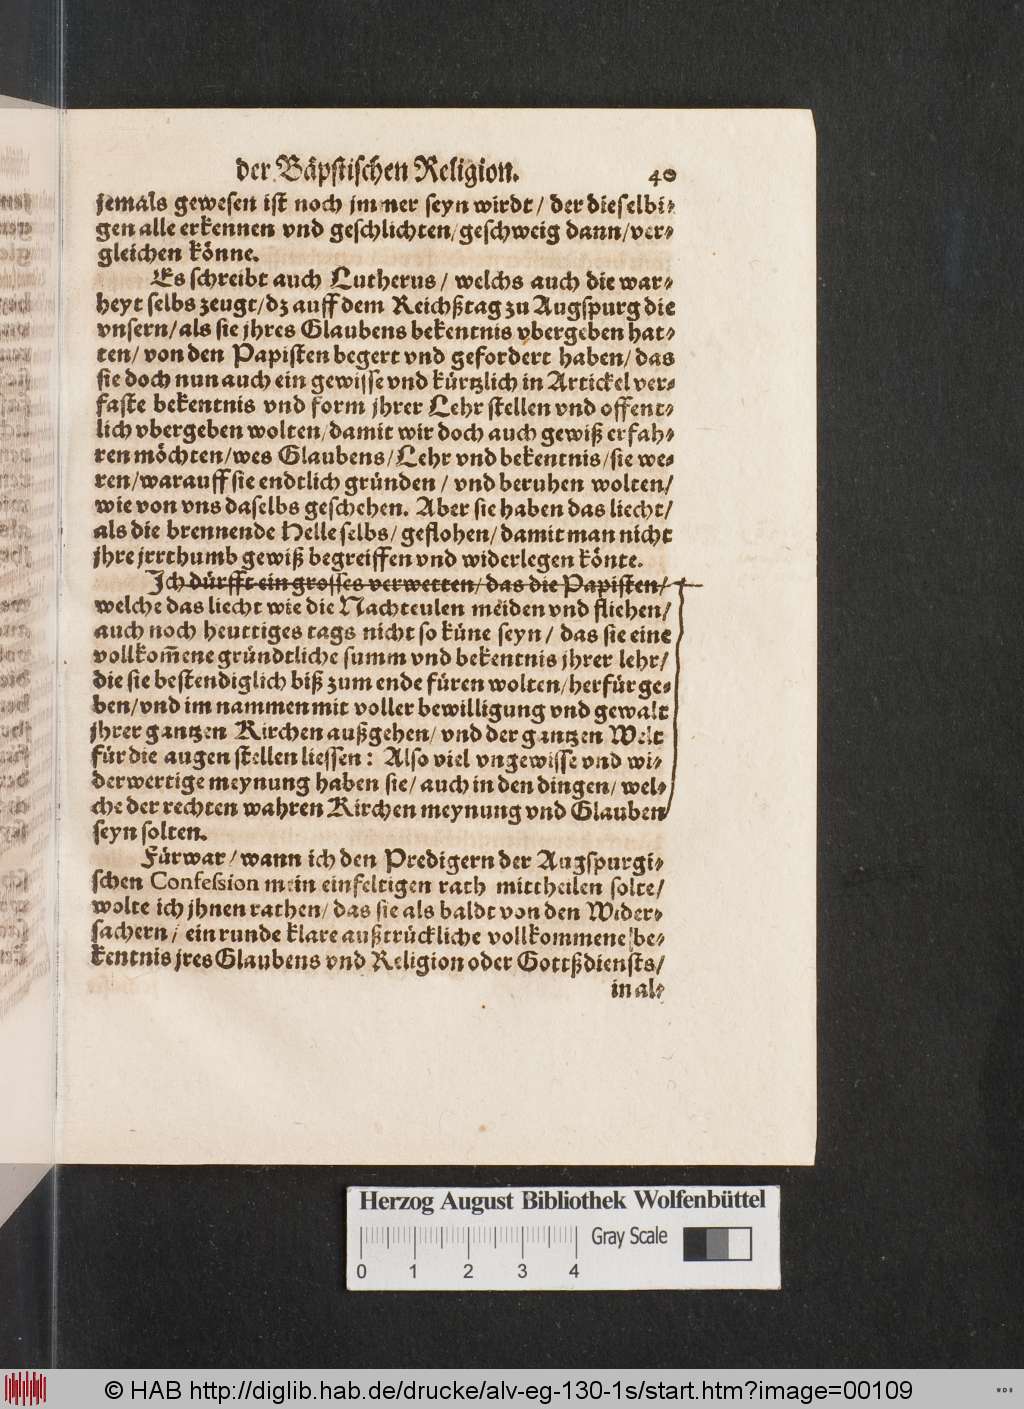 der Bäpstischen Religion. 40
jemals gewesen ist noch immer seyn wirdt/ der dieselbi⸗
gen alle erkennen vnd geschlichten/ geschweig dann/ ver⸗
gleichen könne.
Es schreibt auch Lutherus/ welchs auch die war⸗
heyt selbs zeugt/ dz auff dem Reichßtag zu Augspurg die
vnsern/ als sie jhres Glaubens bekentnis vbergeben hat⸗
ten/ von den Papisten begert vnd gefordert haben/ das
sie doch nun auch ein gewisse vnd kürtzlich in Artickel ver⸗
faste bekentnis vnd form jhrer Lehr stellen vnd offent⸗
lich vbergeben wolten/ damit wir doch auch gewiß erfah⸗
ren möchten/ wes Glaubens/ Lehr vnd bekentnis/ sie we⸗
ren/ warauff sie endtlich gründen/ vnd beruhen wolten/
wie von vns daselbs geschehen. Aber sie haben das liecht/
als die brennende Helle selbs/ geflohen/ damit man nicht
jhre jrrthumb gewiß begreiffen vnd widerlegen könte.
Ich dürfft ein grosses verwetten/ das die Papisten/
welche das liecht wie die Nachteulen meiden vnd fliehen/
auch noch heuttiges tags nicht so küne seyn/ das sie eine
vollkom̃ene gründtliche summ vnd bekentnis jhrer lehr/
die sie bestendiglich biß zum ende füren wolten/ herfür ge⸗
ben/ vnd im nammen mit voller bewilligung vnd gewalt
jhrer gantzen Kirchen außgehen/ vnd der gantzen Welt
für die augen stellen liessen: Also viel vngewisse vnd wi⸗
derwertige meynung haben sie/ auch in den dingen/ wel⸗
che der rechten wahren Kirchen meynung vnd Glauben
seyn solten.
Fürwar/ wann ich den Predigern der Augspurgi⸗
schen Confession mein einfeltigen rath mittheilen solte/
wolte ich jhnen rathen/ das sie als baldt von den Wider⸗
sachern/ ein runde klare außtrückliche vollkommene be⸗
kentnis jres Glaubens vnd Religion oder Gottßdiensts/
in al⸗
Herzog August Bibliothek Wolfenbüttel
0 1 2 3 4 Gray Scale
© HAB http://diglib.hab.de/drucke/alv-eg-130-1s/start.htm?image=00109